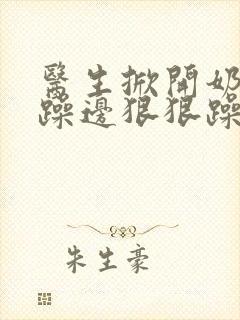 醫生掀開奶
躁邊狠狠躁
朱生豪